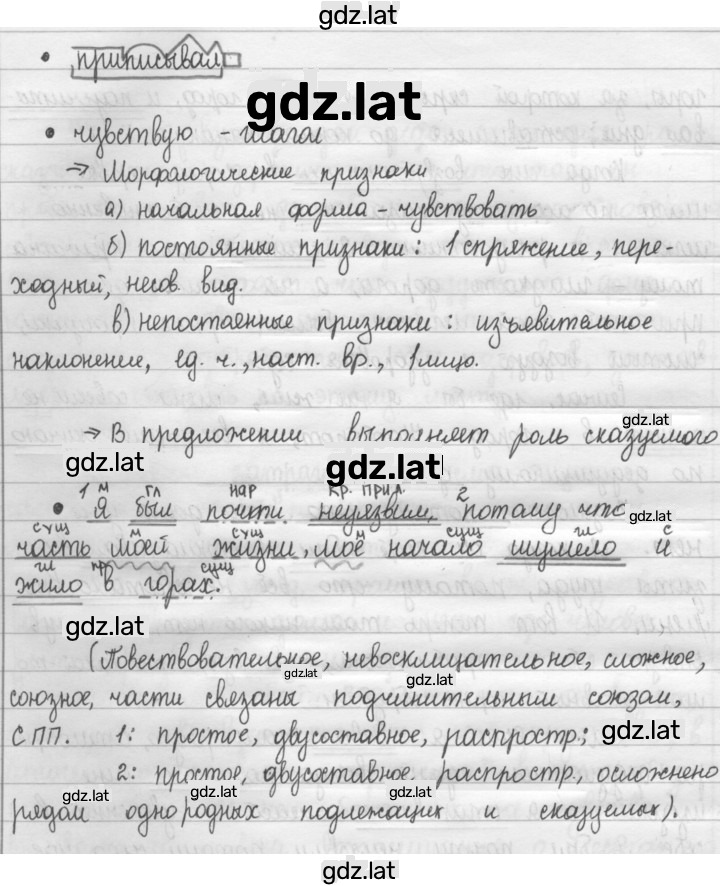 gdz.lat
• приписывал
gdz.lat
• чувствую - глагол
→ Морфологические признаки
а) начальная форма - чувствовать
б) постоянные признаки: 1 спряжение, пере-
ходный, несов. вид.
в) непостоянные признаки: изъявительное
наклонение, ед. ч., наст. вр., 1 лицо.
gdz.lat
→ В предложении выполняет роль сказуемого
gdz.lat gdz.lat
1 м гл нар кр. прил. 2
• Я был почти неуязвим, потому что
gdz.lat
сущ м сущ м сущ гл с
часть моей жизни, мое начало шумело и
гл пр сущ
жило в горах.
gdz.lat
(Повествовательное, невосклицательное, сложное,
gdz.lat gdz.lat
союзное, части связаны подчинительным союзом,
СПП. 1: простое, двусоставное, распростр.;
gdz.lat
2: простое, двусоставное. распростр., осложнено
gdz.lat gdz.lat gdz.lat
рядом однородных подлежащих и сказуемых).
gdz.lat
gdz.lat